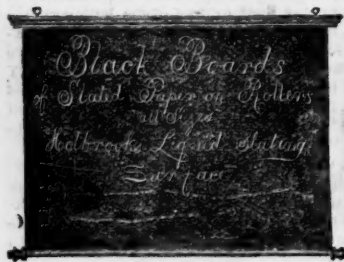 Black Boards
of Slated Paper on Rollers
all sizes
Holbrook's Liquid Slating
Surface